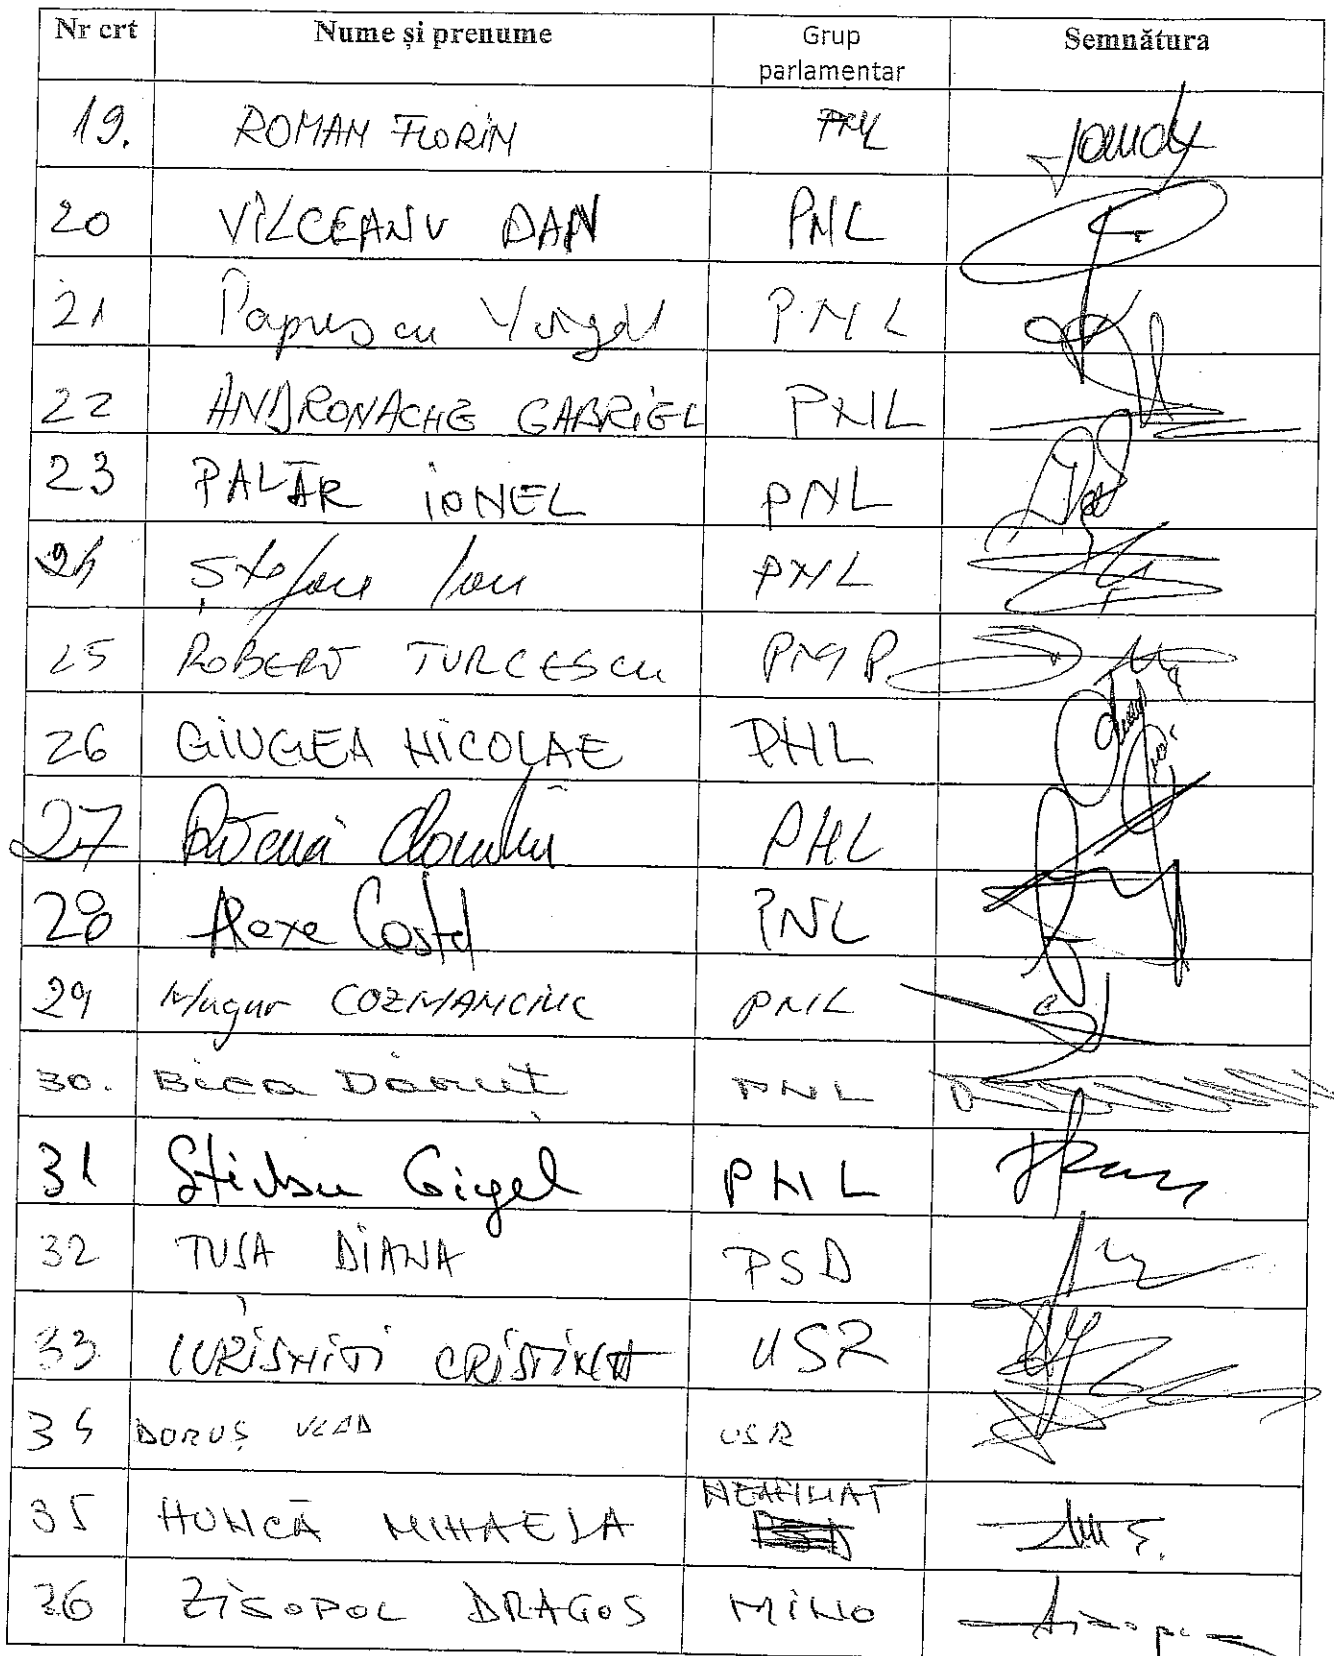 Nr crt Nume și prenume Grup parlamentar Semnătura
19. ROMAN FLORIN PNL
20 VÎLCEANU DAN PNL
21 Popescu Virgil PNL
22 ANDRONACHE GABRIEL PNL
23 PALĂR IONEL PNL
24 Ștefan Ion PNL
25 ROBERT TURCESCU PMP
26 GIUGEA NICOLAE PNL
27 PNL
28 Alexe Costel PNL
29 Mugur COZMANCIUC PNL
30. Bica Dănuț PNL
31 Știrbu Gigel PNL
32 TUȘA DIANA PSD
33 IURIȘNIȚI CRISTINA USR
34 DURUȘ VLAD USR
35 HUNCĂ MIHAELA NEAFILIAT
36 ZISOPOL DRAGOS MINO